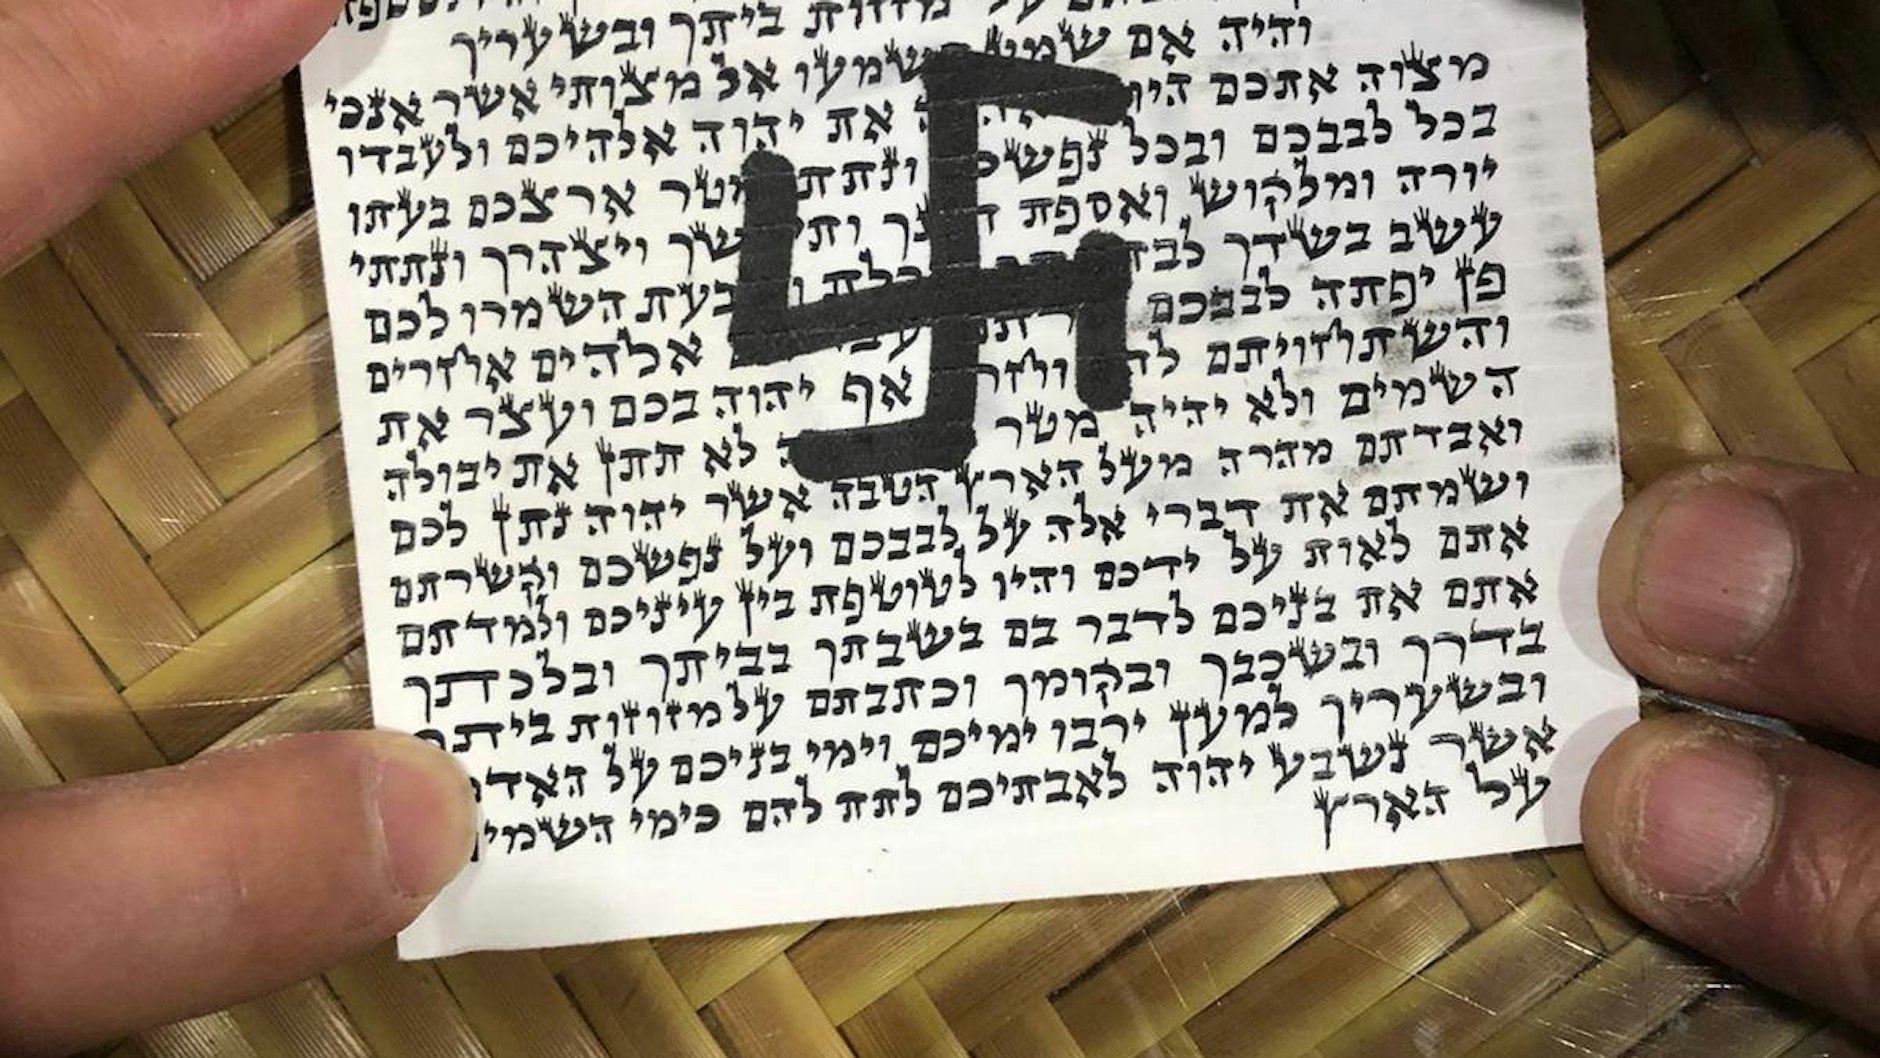 מזוזות ביתך ובשעריך
והיה אם שמע תשמעו אל מצותי אשר אנכי
מצוה אתכם את יהוה אלהיכם ולעבדו
בכל לבבכם ובכל נפשכם ונתתי מטר ארצכם בעתו
יורה ומלקוש ואספת ויצהרך ונתתי
עשב בשדך השמרו לכם
פן יפתה לבבכם אלהים אחרים
והשתחויתם אף יהוה בכם ועצר את
השמים ולא יהיה מטר לא תתן את יבולה
ואבדתם מהרה מעל הארץ הטבה אשר יהוה נתן לכם
ושמתם את דברי אלה על לבבכם ועל נפשכם וקשרתם
אתם לאות על ידכם והיו לטוטפת בין עיניכם ולמדתם
אתם את בניכם לדבר בם בשבתך בביתך ובלכתך
בדרך ובשכבך ובקומך וכתבתם על מזוזות ביתך
ובשעריך למען ירבו ימיכם וימי בניכם על
אשר נשבע יהוה לאבתיכם לתת להם כימי השמים
על הארץ